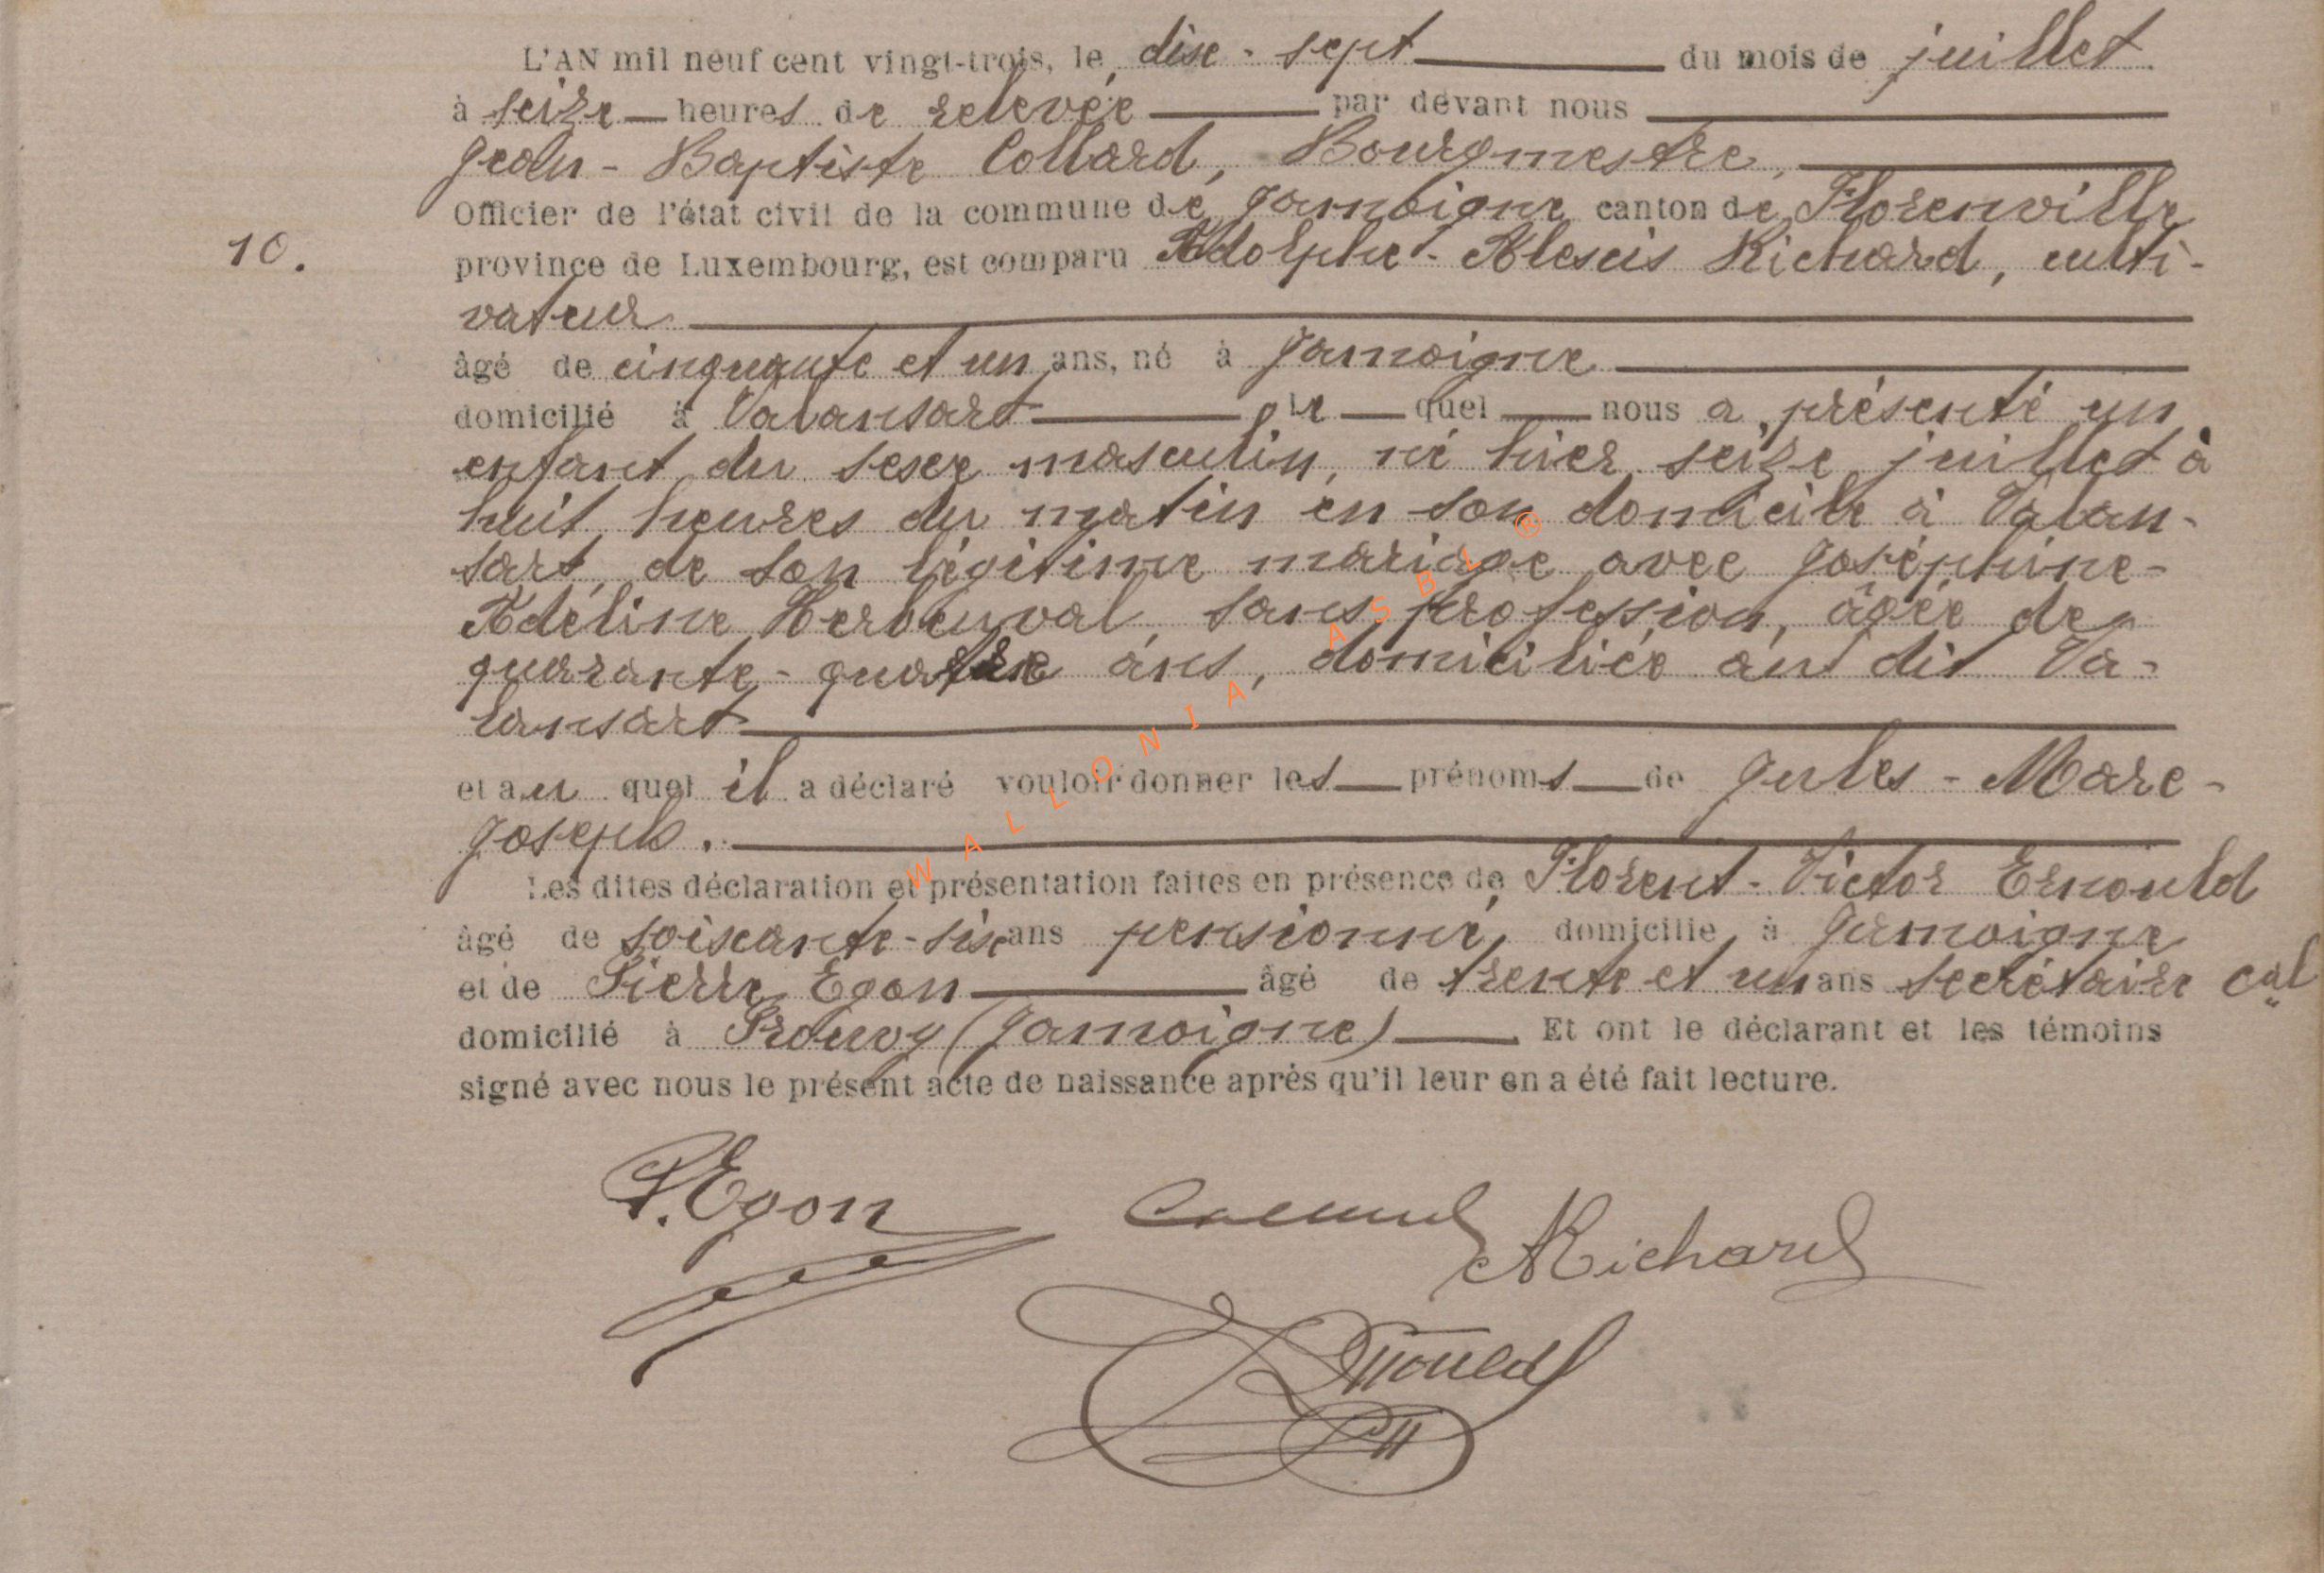 L'AN mil neuf cent vingt-trois, le dix-sept du mois de juillet
à seize heures de relevée par devant nous
Jean-Baptiste Collard, Bourgmestre,
Officier de l'état civil de la commune de Jamoigne canton de Florenville
10.
province de Luxembourg, est comparu Adolphe-Alexis Richard, culti-
vateur
âgé de cinquante et un ans, né à Jamoigne
domicilié à Valansart, lequel nous a présenté un
enfant du sexe masculin, né hier seize juillet à
huit heures du matin en son domicile à Valan-
sart, de son légitime mariage avec Joséphine-
Adeline Herbeuval, sans profession, âgée de
quarante-quatre ans, domiciliée au dit Va-
lansart
et au quel il a déclaré vouloir donner les prénoms de Jules-Marc-
Joseph.
Les dites déclaration et présentation faites en présence de Florent-Victor Ernould
âgé de soixante-six ans pensionné, domicilié à Jamoigne
et de Pierre Egon âgé de trente et un ans secrétaire cal
domicilié à Prouvy (Jamoigne) Et ont le déclarant et les témoins
signé avec nous le présent acte de naissance après qu'il leur en a été fait lecture.
P. Egon
ARichard
Ernould
WALLONIA ASBL ®